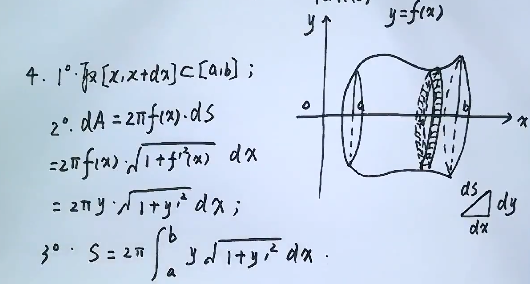 y
y=f(x)
4. 1°. 取[x,x+dx]⊂[a,b];
2°. dA=2πf(x)·dS
=2πf(x)·√(1+f'²(x)) dx
=2πy·√(1+y'²) dx;
3°. S=2π∫_a^b y√(1+y'²) dx.
0 a b x
ds
dy
dx